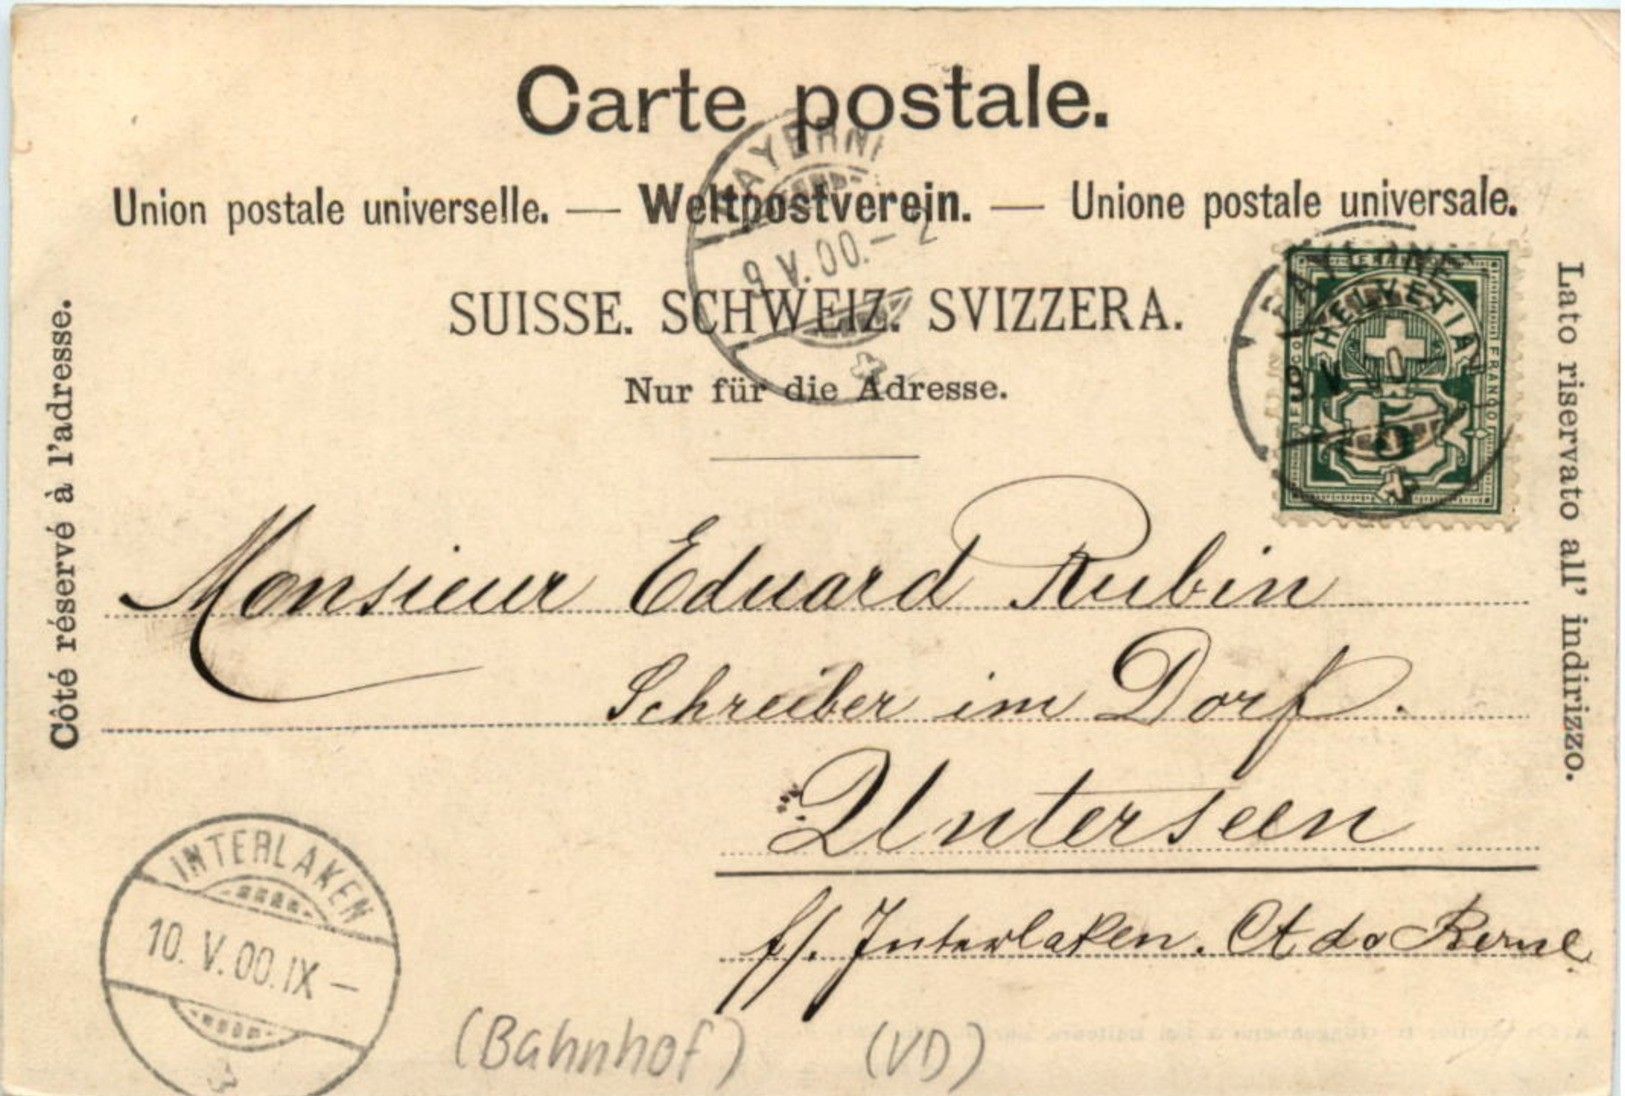 Carte postale.
Union postale universelle. — Weltpostverein. — Unione postale universale.
SUISSE. SCHWEIZ. SVIZZERA.
Nur für die Adresse.
Côté réservé à l'adresse.
Lato riservato all' indirizzo.
PAYERNE
9 V.00.–
PAYERNE
HELVETIA
FRANCO
5
Monsieur Eduard Rubin
Schreiber im Dorf.
Unterseen
f/. Interlaken. Ct de Berne
INTERLAKEN
10. V. 00. IX –
3
(Bahnhof) (VD)